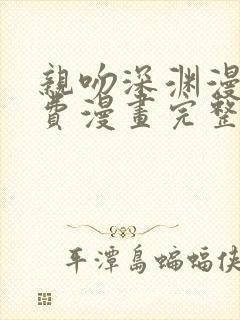 親吻深渊漫
費漫畫完整
平潭島蝙蝠俠